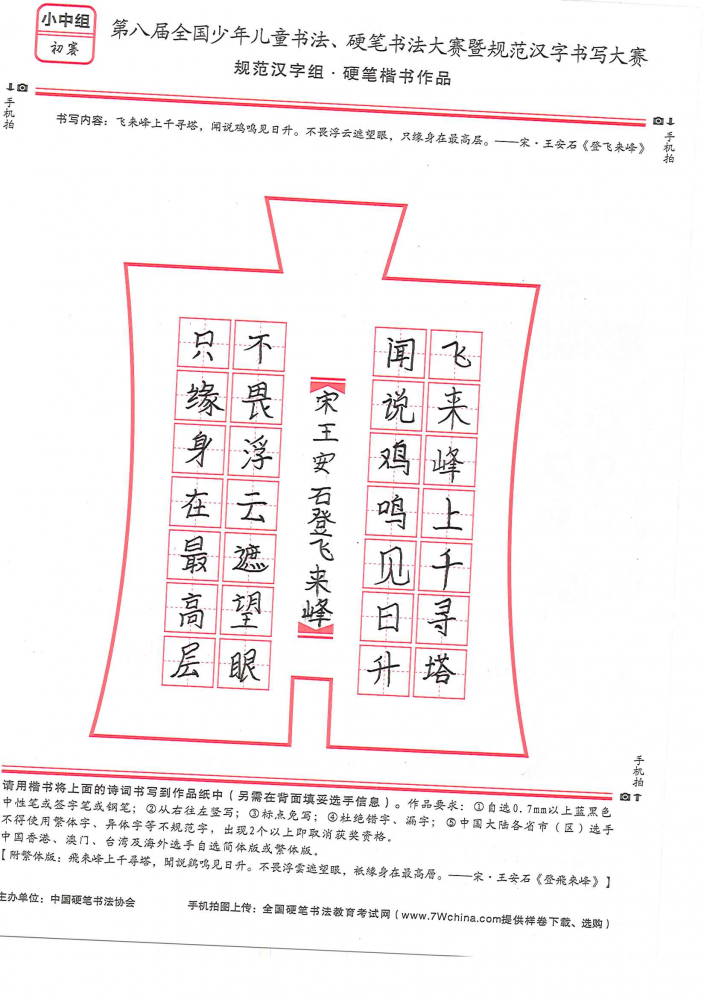 小中组
初赛
第八届全国少年儿童书法、硬笔书法大赛暨规范汉字书写大赛
规范汉字组·硬笔楷书作品
手机拍
手机拍
书写内容：飞来峰上千寻塔，闻说鸡鸣见日升。不畏浮云遮望眼，只缘身在最高层。——宋·王安石《登飞来峰》
飞来峰上千寻塔
闻说鸡鸣见日升
宋王安石登飞来峰
不畏浮云遮望眼
只缘身在最高层
手机拍
请用楷书将上面的诗词书写到作品纸中（另需在背面填妥选手信息）。作品要求：①自选0.7mm以上蓝黑色
中性笔或签字笔或钢笔；②从右往左竖写；③标点免写；④杜绝错字、漏字；⑤中国大陆各省市（区）选手
不得使用繁体字、异体字等不规范字，出现2个以上即取消获奖资格。
中国香港、澳门、台湾及海外选手自选简体版或繁体版。
【附繁体版：飛来峰上千尋塔，聞説鷄鳴見日升。不畏浮雲遮望眼，衹緣身在最高層。——宋·王安石《登飛来峰》】
主办单位：中国硬笔书法协会
手机拍图上传：全国硬笔书法教育考试网（www.7Wchina.com提供样卷下载、选购）